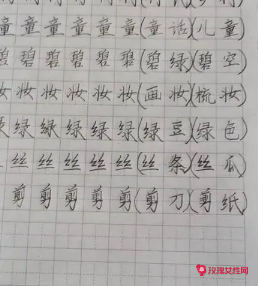 童童童童童(童话)(儿童
碧碧碧碧碧(碧绿)(碧空
妆妆妆妆妆(画妆)(梳妆
绿绿绿绿绿绿(绿豆)(绿色
丝丝丝丝丝丝(丝条)(丝瓜
剪剪剪剪剪(剪刀)(剪纸
玫瑰女性网